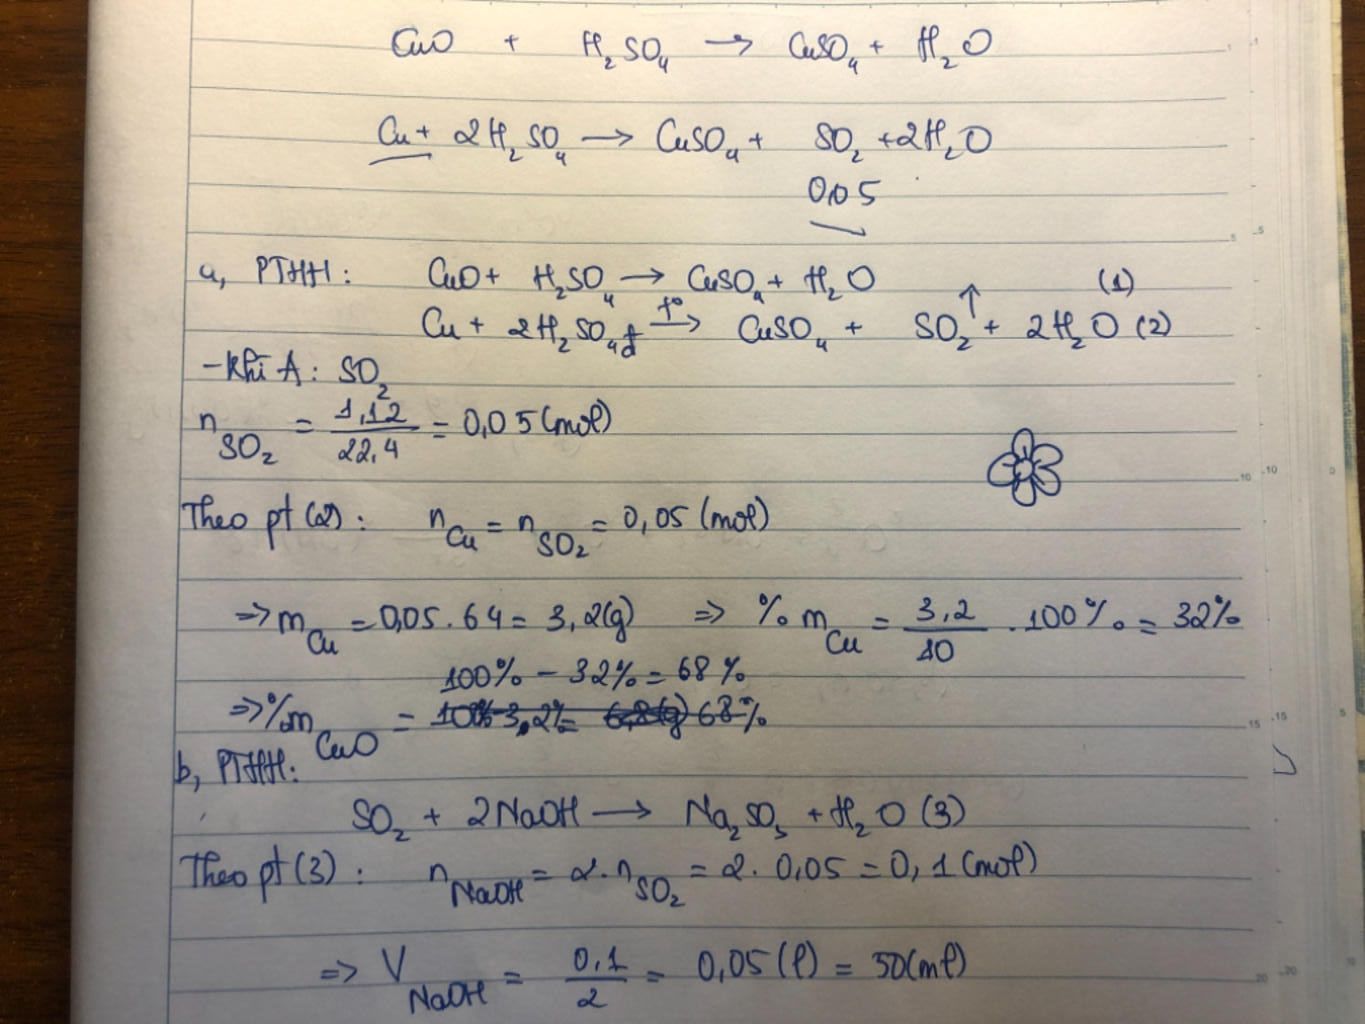 CuO + H₂SO₄ → CuSO₄ + H₂O
Cu + 2H₂SO₄ → CuSO₄ + SO₂ + 2H₂O
0,05
a, PTHH: CuO + H₂SO₄ → CuSO₄ + H₂O (1)
Cu + 2H₂SO₄đ –t°→ CuSO₄ + SO₂↑ + 2H₂O (2)
- Khí A: SO₂
n SO₂ = 1,12 / 22,4 = 0,05 (mol)
Theo pt (2): n Cu = n SO₂ = 0,05 (mol)
=> m Cu = 0,05 . 64 = 3,2(g) => % m Cu = 3,2 / 10 . 100% = 32%
100% - 32% = 68%
=> %m CuO = 68%
b, PTHH:
SO₂ + 2NaOH → Na₂SO₃ + H₂O (3)
Theo pt (3): n NaOH = 2. n SO₂ = 2. 0,05 = 0,1 (mol)
=> V NaOH = 0,1 / 2 = 0,05 (l) = 50(ml)